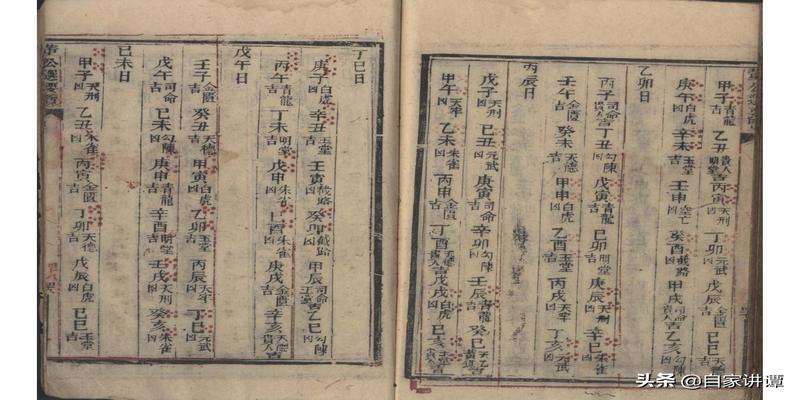 甲子青龍 乙丑貴人明堂吉 丙寅天刑凶 丁卯元武凶 戊辰金匱吉 己巳吉
庚午白虎凶 辛未玉堂吉 壬申空亡凶 癸酉截路凶 甲戌司命吉 乙亥勾陳
乙卯日
丙子司命貴人吉 丁丑勾陳凶 戊寅青龍吉 己卯明堂吉 庚辰天刑凶 辛巳朱雀凶
壬午金匱吉 癸未天德吉 甲申白虎凶 乙酉玉堂吉 丙戌天牢凶 丁亥元武凶
丙辰日
戊子天牢凶 己丑元武凶 庚寅司命吉 辛卯勾陳凶 壬辰青龍吉 癸巳天乙貴人
甲午天牢凶 乙未朱雀凶 丙申金匱吉 丁酉貴人吉 戊戌白虎凶 己亥貴人吉
丁巳日
庚子白虎凶 辛丑玉堂吉 壬寅截路凶 癸卯截路凶 甲辰司命吉 乙巳勾陳凶
丙午青龍吉 丁未明堂吉 戊申朱雀凶 己酉朱雀吉 庚戌金匱吉 辛亥天德貴人吉
戊午日
壬子金匱吉 癸丑天德吉 甲寅白虎凶 乙卯玉堂吉 丙辰天牢凶 丁巳元武凶
戊午司命吉 己未勾陳凶 庚申青龍吉 辛酉明堂吉 壬戌天刑凶 癸亥朱雀凶
己未日
甲子天刑凶 乙丑朱雀凶 丙寅金匱吉 丁卯天德吉 戊辰白虎凶 己巳玉堂吉
董公選要覽
头条 @自家讲谭